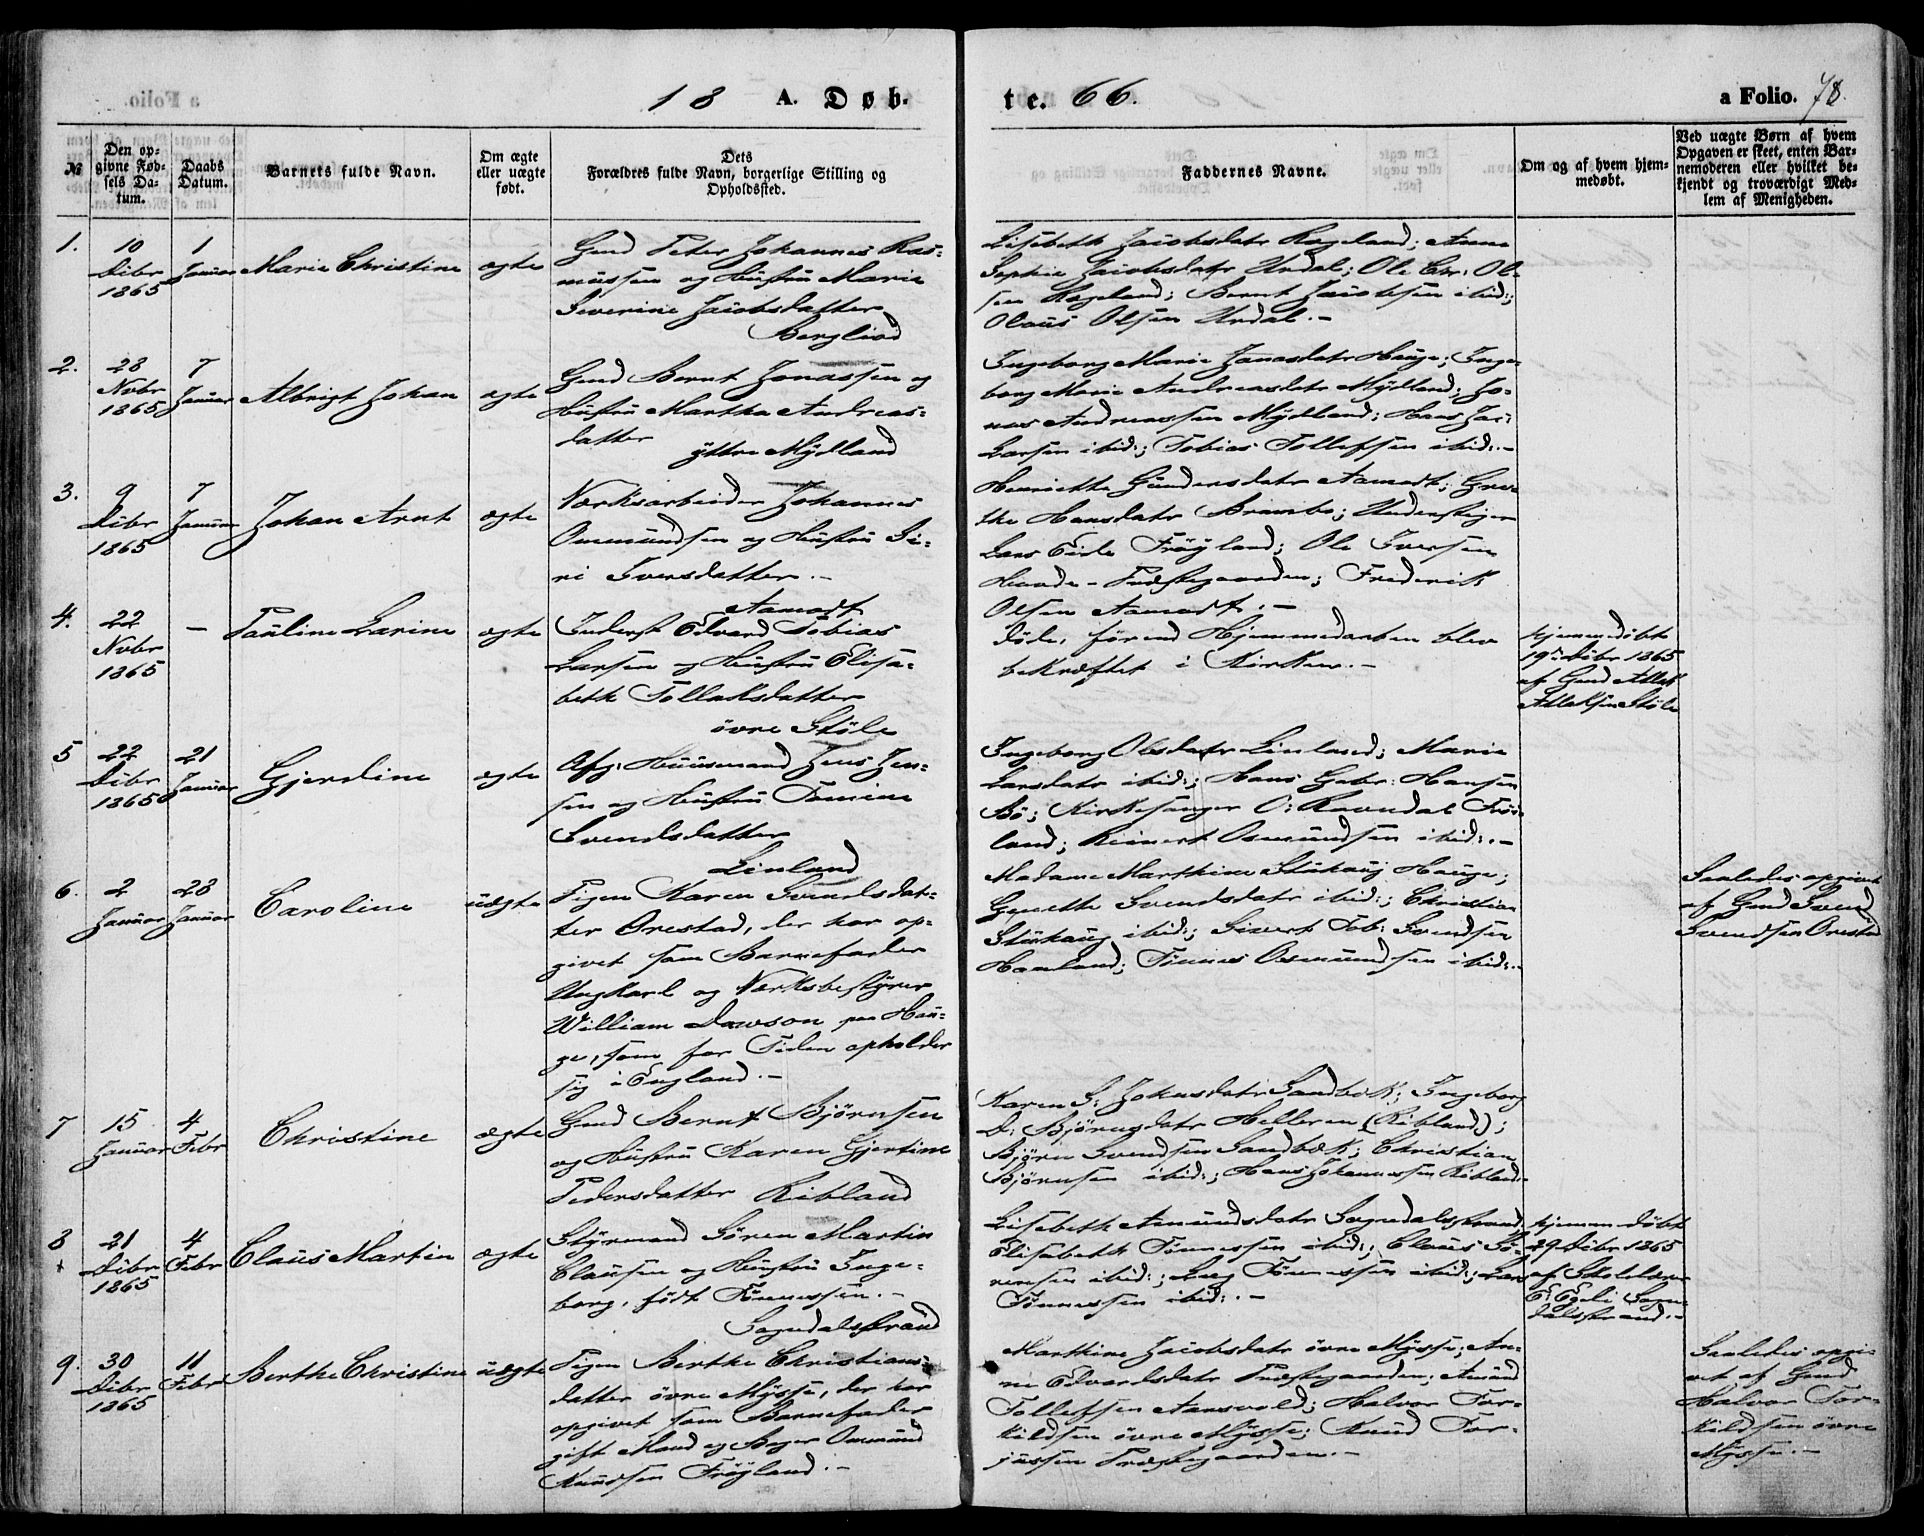 18 A. Døb-
te. 66.
a Folio. 78.
№
Den op-
givne Fød-
sels Da-
tum.
Daabs
Datum.
Barnets fulde Navn.
Om ægte
eller uægte
født.
Dets
Forældres fulde Navn, borgerlige Stilling og
Opholdssted.
Faddernes Navne.
Om og af hvem hjem-
medøbt.
Ved uægte Børn af hvem
Opgaven er skeet, enten Bar-
nemoderen eller hvilket be-
kjendt og troværdigt Med-
lem af Menigheden.
1.
10
Dcbr
1865
1
Januar
Marie Christine
ægte
Gmd Peter Johannes Ras-
mussen og Hustru Marie
Severine Jacobsdatter
Bergliod
Lisebeth Jacobsdatr Rægeland; Anne
Sophie Jacobsdatr Urdal; Ole Chr: Ol-
sen Rægeland; Bernt Jacobsen ibid:;
Olaus Olsen Urdal.-
2.
28
Nvbr
1865
7
Januar
Albrigt Johan
ægte
Gmd Bernt Jonassen og
Hustru Martha Andreas-
datter
yttre Mydland
Ingeborg Marie Jonasdatr Hauge; Inge-
borg Marie Andreasdatr Mydland; Jo-
nas Andreassen Mydland; Hans Jac:
Larsen ibid:; Tobias Tollefsen ibid:.-
3.
9
Dcbr
1865
7
Januar
Johan Arnt
ægte
Værksarbeider Johannes
Ommundsen og Hustru Si-
ri Iversdatter.-
Aamodt
Henriette Gundersdatr Aamodt; Gre-
the Hansdatr Brambo; Understiger
Lars Eide Frøyland; Ole Iversen
Hovde-Præstegaarden; Frederik
Olsen Aamodt.-
4.
22
Nvbr
1865
-
Pauline Larine
ægte
Inderst Edvard Tobias
Larsen og Hustru Elisa-
beth Tollaksdatter
øvre Støle
døde, førend Hjemmedaaben blev
bekræftet i Kirken.-
hjemmedøbt
19de Dcbr 1865
af Gmd Atlak
Atlaksen Støle
5
22
Dcbr
1865
21
Januar
Gjerdine
ægte
Afg: Huusmand Jens Jen-
sen og Hustru Tomine
Svendsdatter
Linland
Ingeborg Olsdatr Linland; Marie
Larsdatr ibid:; Hans Gabr: Hansen
Bø; Kirkesanger O: Ravndal Frøi-
land; Reinert Osmundsen ibid:.-
6.
2
Januar
28
Januar
Caroline
uægte
Pigen Karen Svendsdat-
ter Ørestad, der har op-
givet som Barnefader
Ungkarl og Værksbestyrer
William Dawson paa Hau-
ge, som for Tiden opholder
sig i England.-
Madame Marthine Stuhaug Hauge;
Svendsdatr ibid:; Christian
Stuhaug ibid:; Sivert Tob: Svendsen
Haaland; Tønnes Osmundsen ibid:.-
Saaledes opgivet
af Gmd Svend
Svendsen Ørestad
7
15
Januar
4
Febr
Christine
ægte
Gmd Bernt Bjørnsen
og Hustru Karen Gjertine
Pedersdatter Ribland
Karen S: Johnsdatr Sandbæk; Ingeborg
D: Bjørnsdatr Helleren (Ribland);
Bjørn Svendsen Sandbæk; Christian
Bjørnsen ibid:; Hans Johannessen Ribland.
8
21
Dcbr
1865
4
Febr
Claus Martin
ægte
Styrmand Søren Martin
Clausen og Hustru Inge-
borg, født Tønnessen.-
Sogndalsstrand
Lisebeth Amundsdatr Sogndalsstrand
Elisabeth Tønnessen ibid:; Claus Sø-
rensen ibid:; Tønnessen ibid:; Lars
Tønnessen ibid:.-
hjemmedøbt
29 Dcbr 1865
af Skolelærer
E: Egeli Sogn-
dalsstrand.-
9.
30
Dcbr
1865
11
Febr
Berthe Christine
uægte
Pigen Berthe Christians-
datter øvre Mysse, der har
opgivet som Barnefader
gift Mand og Bøger Ommund
Knudsen Frøyland.-
Marthine Jacobsdatr øvre Mysse; An-
ne Edvardsdatr Præstegaarden; Amund
Tollefsen Aarsvold; Halvor Tor-
kildsen øvre Mysse; Knud Tor-
jussen Præstegaarden.-
Saaledes opgi-
vet af Gmd
Halvor Tor-
kildsen øvre
Mysse.-